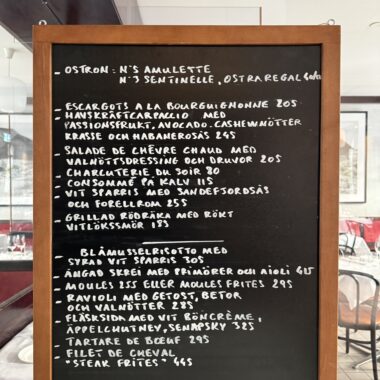 - OSTRON: N°5 AMULETTE
N°3 SENTINELLE, OSTRA REGAL 40/st
- ESCARGOTS A LA BOURGUIGNONNE 205
- HAVSKRÄFTCARPACCIO MED
PASSIONSFRUKT, AVOCADO, CASHEWNÖTTER
KRASSE OCH HABANEROSÅS 245
- SALADE DE CHÈVRE CHAUD MED
VALNÖTSDRESSING OCH DRUVOR 205
- CHARCUTERIE DU SOIR 80
- CONSOMMÉ PÅ KALV 115
- VIT SPARRIS MED SANDEFJORDSÅS
OCH FORELLROM 255
- GRILLAD RÖDRÄKA MED RÖKT
VITLÖKSSMÖR 185
- BLÅMUSSELRISOTTO MED
SYRAD VIT SPARRIS 305
- ÄNGAD SKREI MED PRIMÖRER OCH AIOLI 415
- MOULES 255 ELLER MOULES FRITES 295
- RAVIOLI MED GETOST, BETOR
OCH VALNÖTTER 285
- FLÄSKSIDA MED VIT BÖNCRÈME,
ÄPPELCHUTNEY, SENAPSKY 325
- TARTARE DE BŒUF 295
- FILET DE CHEVAL
"STEAK FRITES" 445